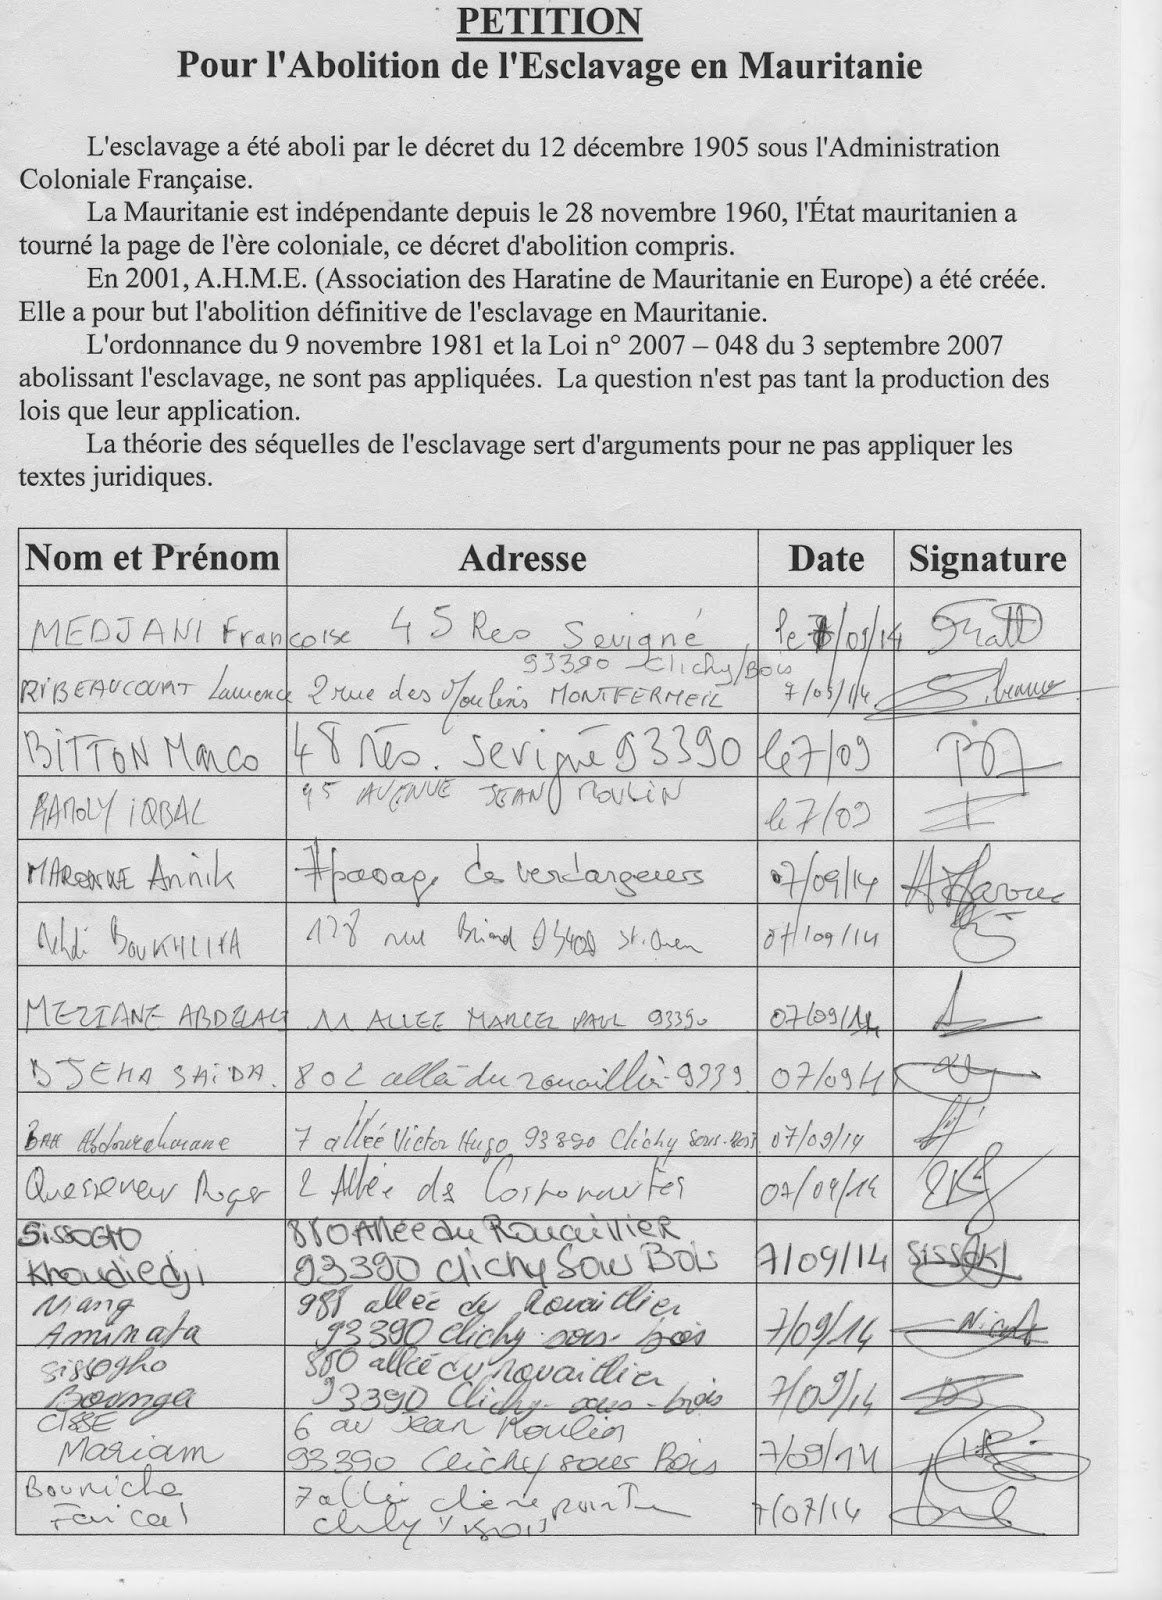 PETITION
Pour l'Abolition de l'Esclavage en Mauritanie
L'esclavage a été aboli par le décret du 12 décembre 1905 sous l'Administration
Coloniale Française.
La Mauritanie est indépendante depuis le 28 novembre 1960, l'État mauritanien a
tourné la page de l'ère coloniale, ce décret d'abolition compris.
En 2001, A.H.M.E. (Association des Haratine de Mauritanie en Europe) a été créée.
Elle a pour but l'abolition définitive de l'esclavage en Mauritanie.
L'ordonnance du 9 novembre 1981 et la Loi n° 2007 – 048 du 3 septembre 2007
abolissant l'esclavage, ne sont pas appliquées. La question n'est pas tant la production des
lois que leur application.
La théorie des séquelles de l'esclavage sert d'arguments pour ne pas appliquer les
textes juridiques.
Nom et Prénom Adresse Date Signature
MEDJANI Francoise 45 Res Sevigné le 7/09/14
93390 Clichy/Bois
RIBEAUCOURT Laurence 2 rue des Moulins MONTFERMEIL 7/09/14
BITTON Marco 48 Rés. Sevigné 93390 le 7/09
RAMOLY IQBAL 95 AVENUE JEAN MOULIN le 7/09
MARONNE Annik 7 passage des 07/09/14
Mehdi BOUKHLIFA 128 rue Briand St. Ouen 07/09/14
MEZIANE ABDELALI 11 ALLEE MARCEL PAUL 93390 07/09/14
DJEMA SAIDA. 802 allée du 9339 07/09/14
BAH Abdourahmane 7 allée Victor Hugo 93390 Clichy sous-Bois 07/09/14
Roger 2 Allée des Cosmonautes 07/09/14
SISSOGHO 880 Allée du Rouaillier
Khoudiedji 93390 Clichy Sous Bois 7/09/14
Niang 988 allée du Rouaillier
Aminata 93390 Clichy-sous-bois 7/09/14
Sissogho 880 allée du rouaillier
93390 Clichy-sous-bois 7/09/14
CISSE 6 av Jean Moulin
Mariam 93390 Clichy sous Bois 7/09/14
Bouricha 7 allée
Faical 7/07/14